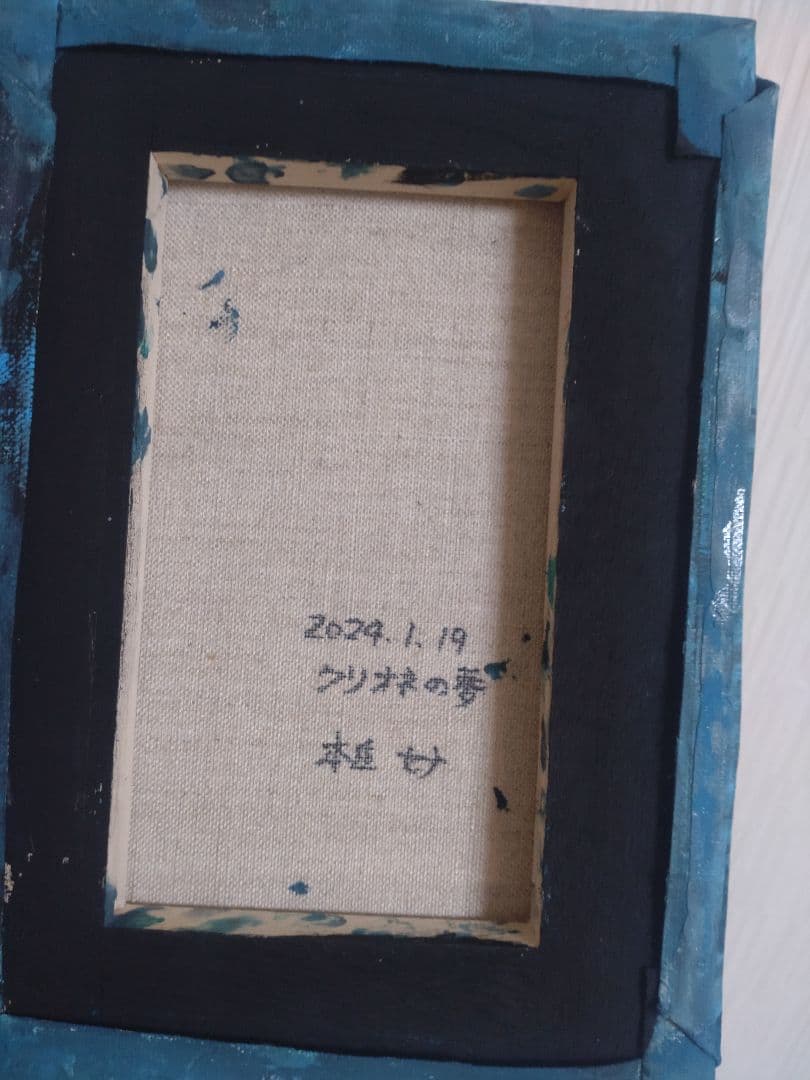 2024.1.19
クリオネの夢